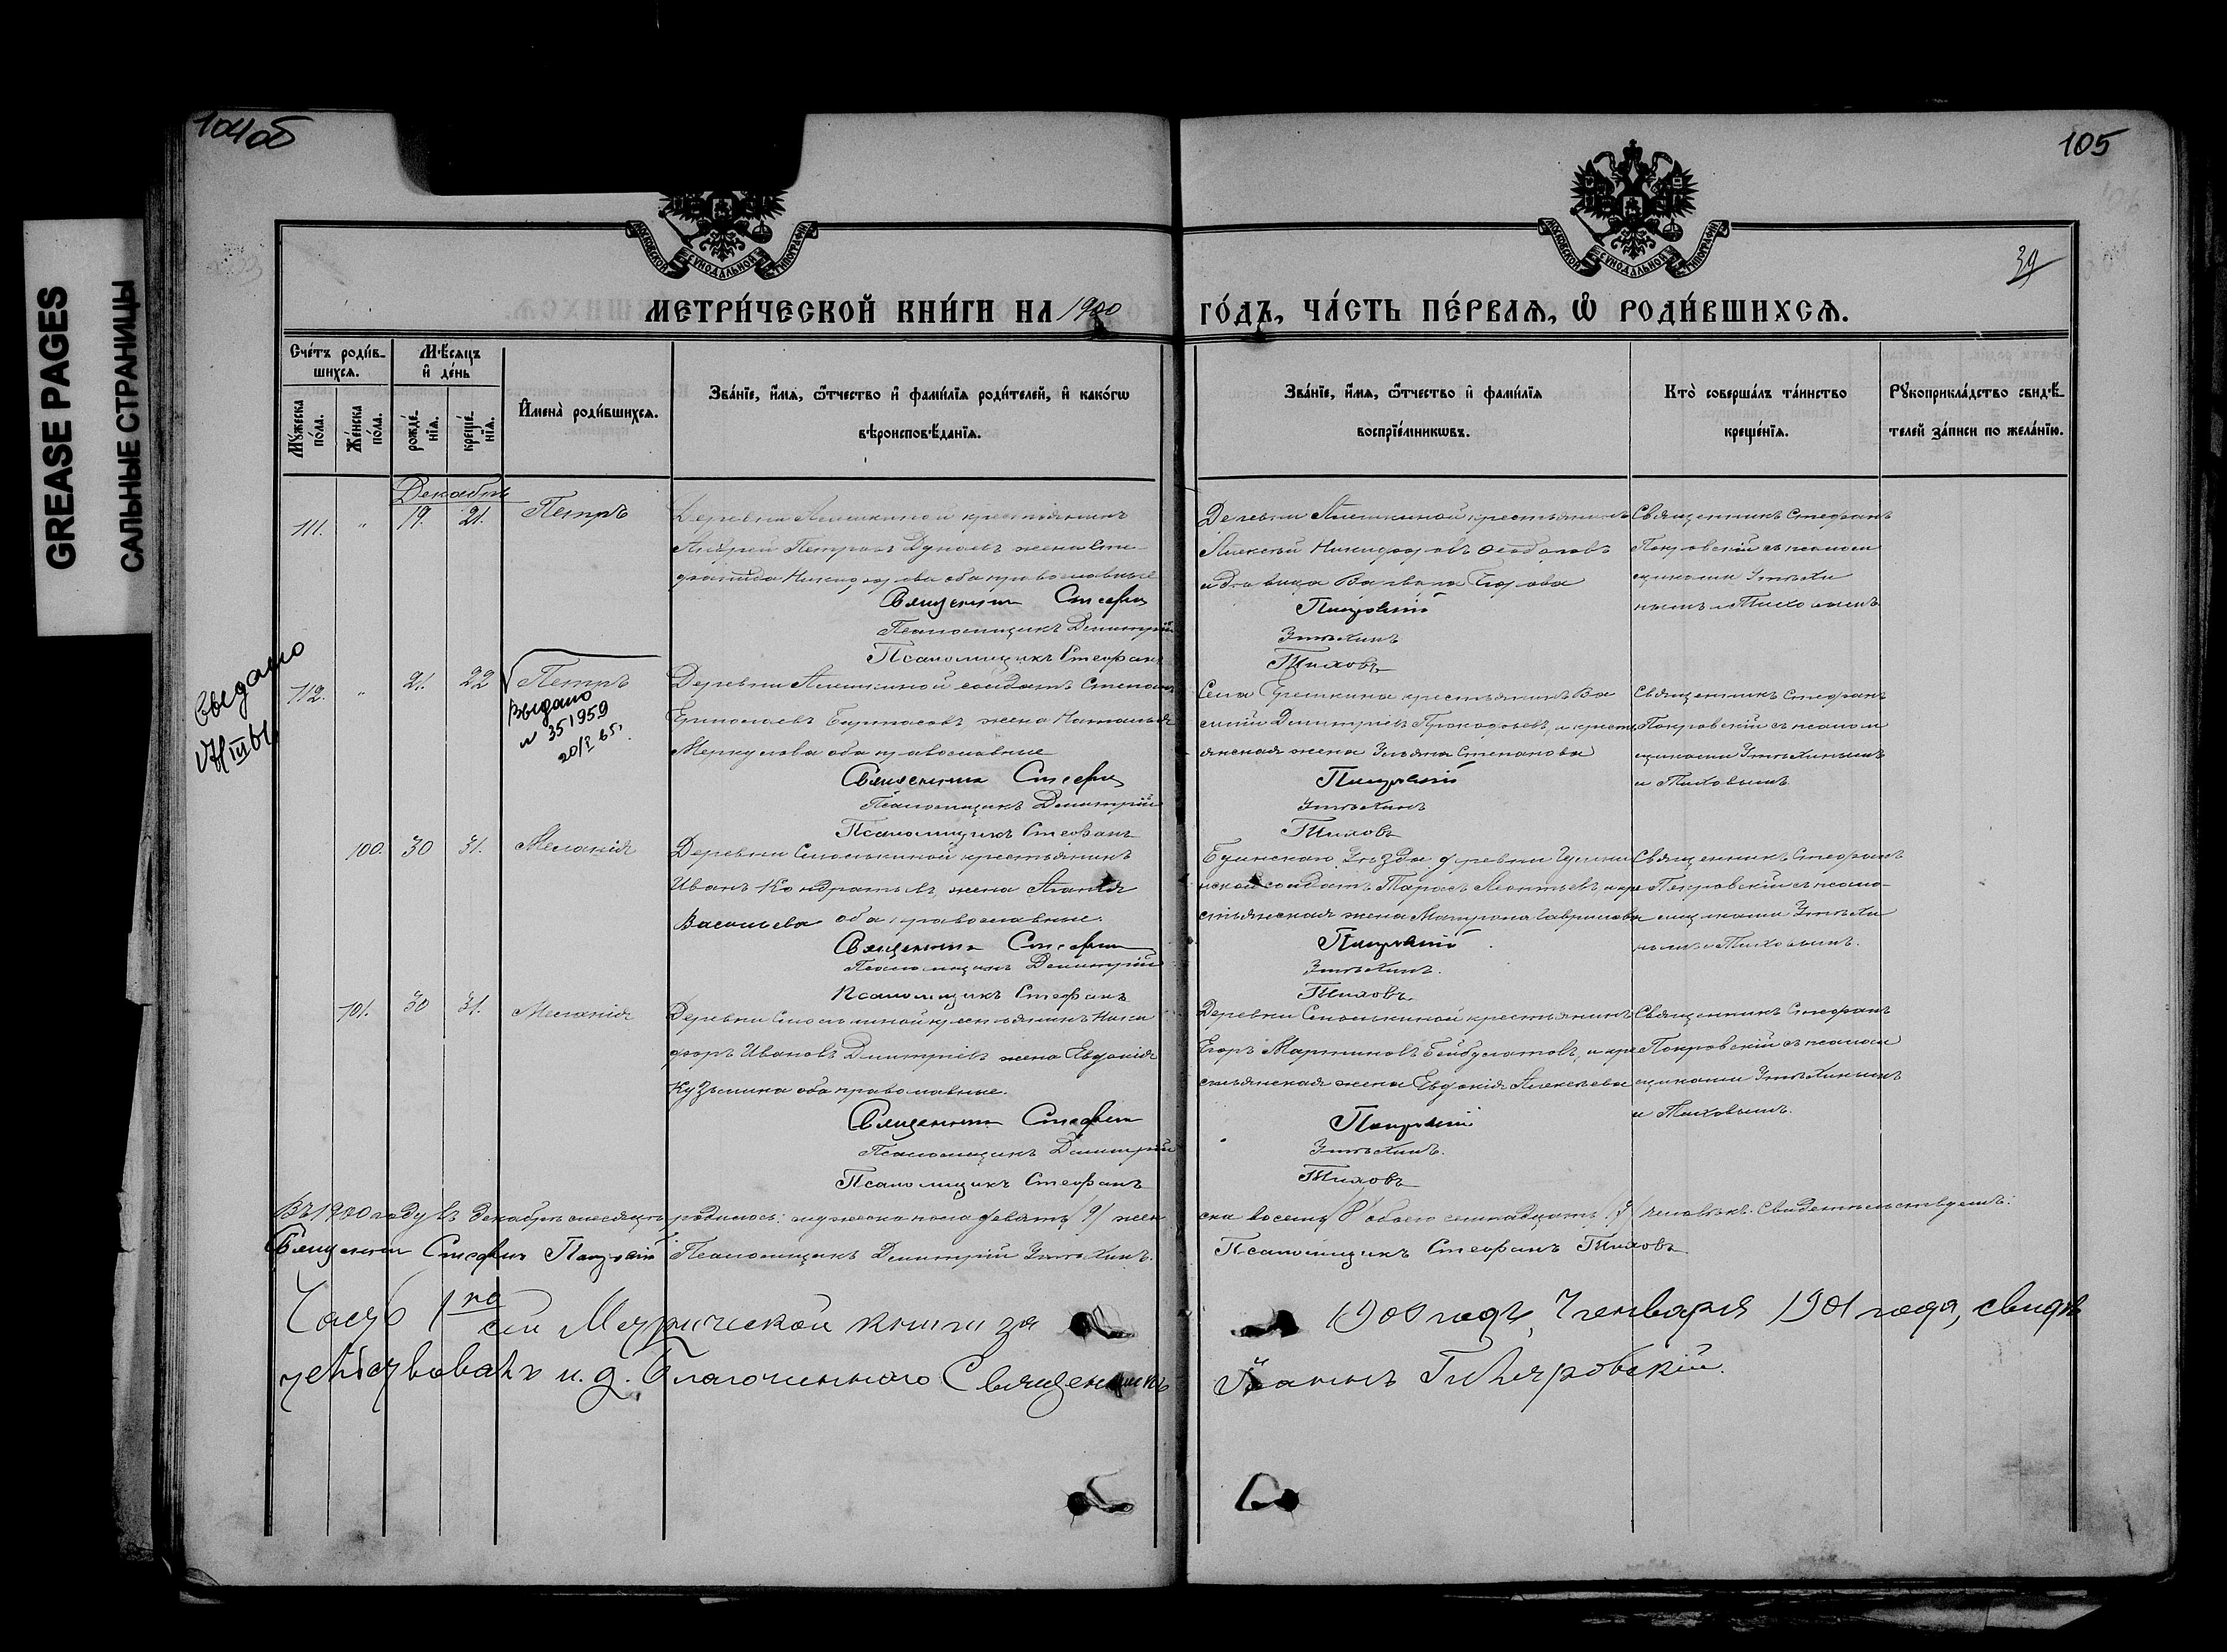 GREASE PAGES
САЛЬНЫЕ СТРАНИЦЫ
104об
105
39
МОСКОВСКОЙ СѴНОДАЛЬНОЙ ТИПОГРАФІИ
МОСКОВСКОЙ СѴНОДАЛЬНОЙ ТИПОГРАФІИ
МЕТРИ́ЧЕСКОЙ КНИ́ГИ НА 1900 ГО́ДЪ, ЧА́СТЬ ПЕ́РВАѦ, Ѽ РОДИ́ВШИХСѦ.
Сче́тъ роди́в-
шихсѧ.
Мꙋ́жеска по́ла.
Же́нска по́ла.
Мѣ́сѧцъ
и҆ де́нь
рожде́-
нїѧ.
креще́-
нїѧ.
И҆мена̀ роди́вшихсѧ.
Зва́нїе, и҆́мѧ, ѻ҆́тчество и҆ фами́лїѧ роди́телей, и҆ како́гѡ
вѣроисповѣ́данїѧ.
Зва́нїе, и҆́мѧ, ѻ҆́тчество и҆ фами́лїѧ
воспрїе́мникѡвъ.
Кто̀ соверша́лъ та́инство
креще́нїѧ.
Рꙋкоприкла́дство свидѣ́-
телей за́писи по жела́нїю.
Декабрь
111. " 19. 21. Петръ
Деревни Алешкиной крестьянинъ
Андрей Петровъ жена Сте-
фанида Никифорова оба православные
Священникъ Стефанъ
Псаломщикъ Димитрій
Псаломщикъ Стефанъ
Деревни Алешкиной крестьянинъ
Алексѣй Никифоровъ
и дѣвица Варвара Егорова
Покровскій
Утѣхинъ
Тиховъ
Священникъ Стефанъ
Покровскій съ псалом
щиками Утѣхи
нымъ и Тиховымъ
выдано
112. " 21. 22 Петръ
Выдано
N 351959
20/I 65г.
Деревни Алешкиной солдатъ Степанъ
Ермолаевъ жена Наталья
Меркулова оба православные
Священникъ Стефанъ
Псаломщикъ Димитрій
Псаломщикъ Стефанъ
Села крестьянинъ Ва
силій Димитріевъ Прокофьевъ, и кресть
янская жена Ульяна Степанова
Покровскій
Утѣхинъ
Тиховъ
Священникъ Стефанъ
Покровскій съ псалом
щиками Утѣхинымъ
и Тиховымъ
100. 30 31. Меланія
Деревни Смолькиной крестьянинъ
Иванъ Кондратьевъ, жена Агапія
Васильева оба православные.
Священникъ Стефанъ
Псаломщикъ Димитрій
Псаломщикъ Стефанъ
Буинскаго Уѣзда деревни
солдатъ Тарасъ Леонтьевъ, и кре
стьянская жена Матрона Гаврилова
Покровскій
Утѣхинъ.
Тиховъ.
Священникъ Стефанъ
Покровскій съ псало-
щиками Утѣхи
нымъ и Тиховымъ.
101. 30 31. Меланія
Деревни Смолькиной крестьянинъ Ники
форъ Ивановъ Димитріевъ жена Евдокія
Кузьмина оба православные.
Священникъ Стефанъ
Псаломщикъ Димитрій
Псаломщикъ Стефанъ
Деревни Смолькиной крестьянинъ
Егоръ Мартиновъ Бейбулатовъ, и кре
стьянская жена Евдокія Алексѣева
Покровскій
Утѣхинъ.
Тиховъ
Священникъ Стефанъ
Покровскій съ псалом
щиками Утѣхинымъ
и Тиховымъ.
Въ 1900 году въ Декабрѣ мѣсяцѣ родилось: мужеска пола девять /9/ жен
ска восемь /8/ обоего семнадцать /17/ человѣкъ. Свидетельствуемъ:
Священникъ Стефанъ Покровскій Псаломщикъ Димитрій Утѣхинъ.
Псаломщикъ Стефанъ Тиховъ
Часть 1ую сей Метрической книги за 1900 годъ, 7 генваря 1901 года, свидѣ
тельствовалъ и. д. Благочиннаго Священникъ Іоаннъ